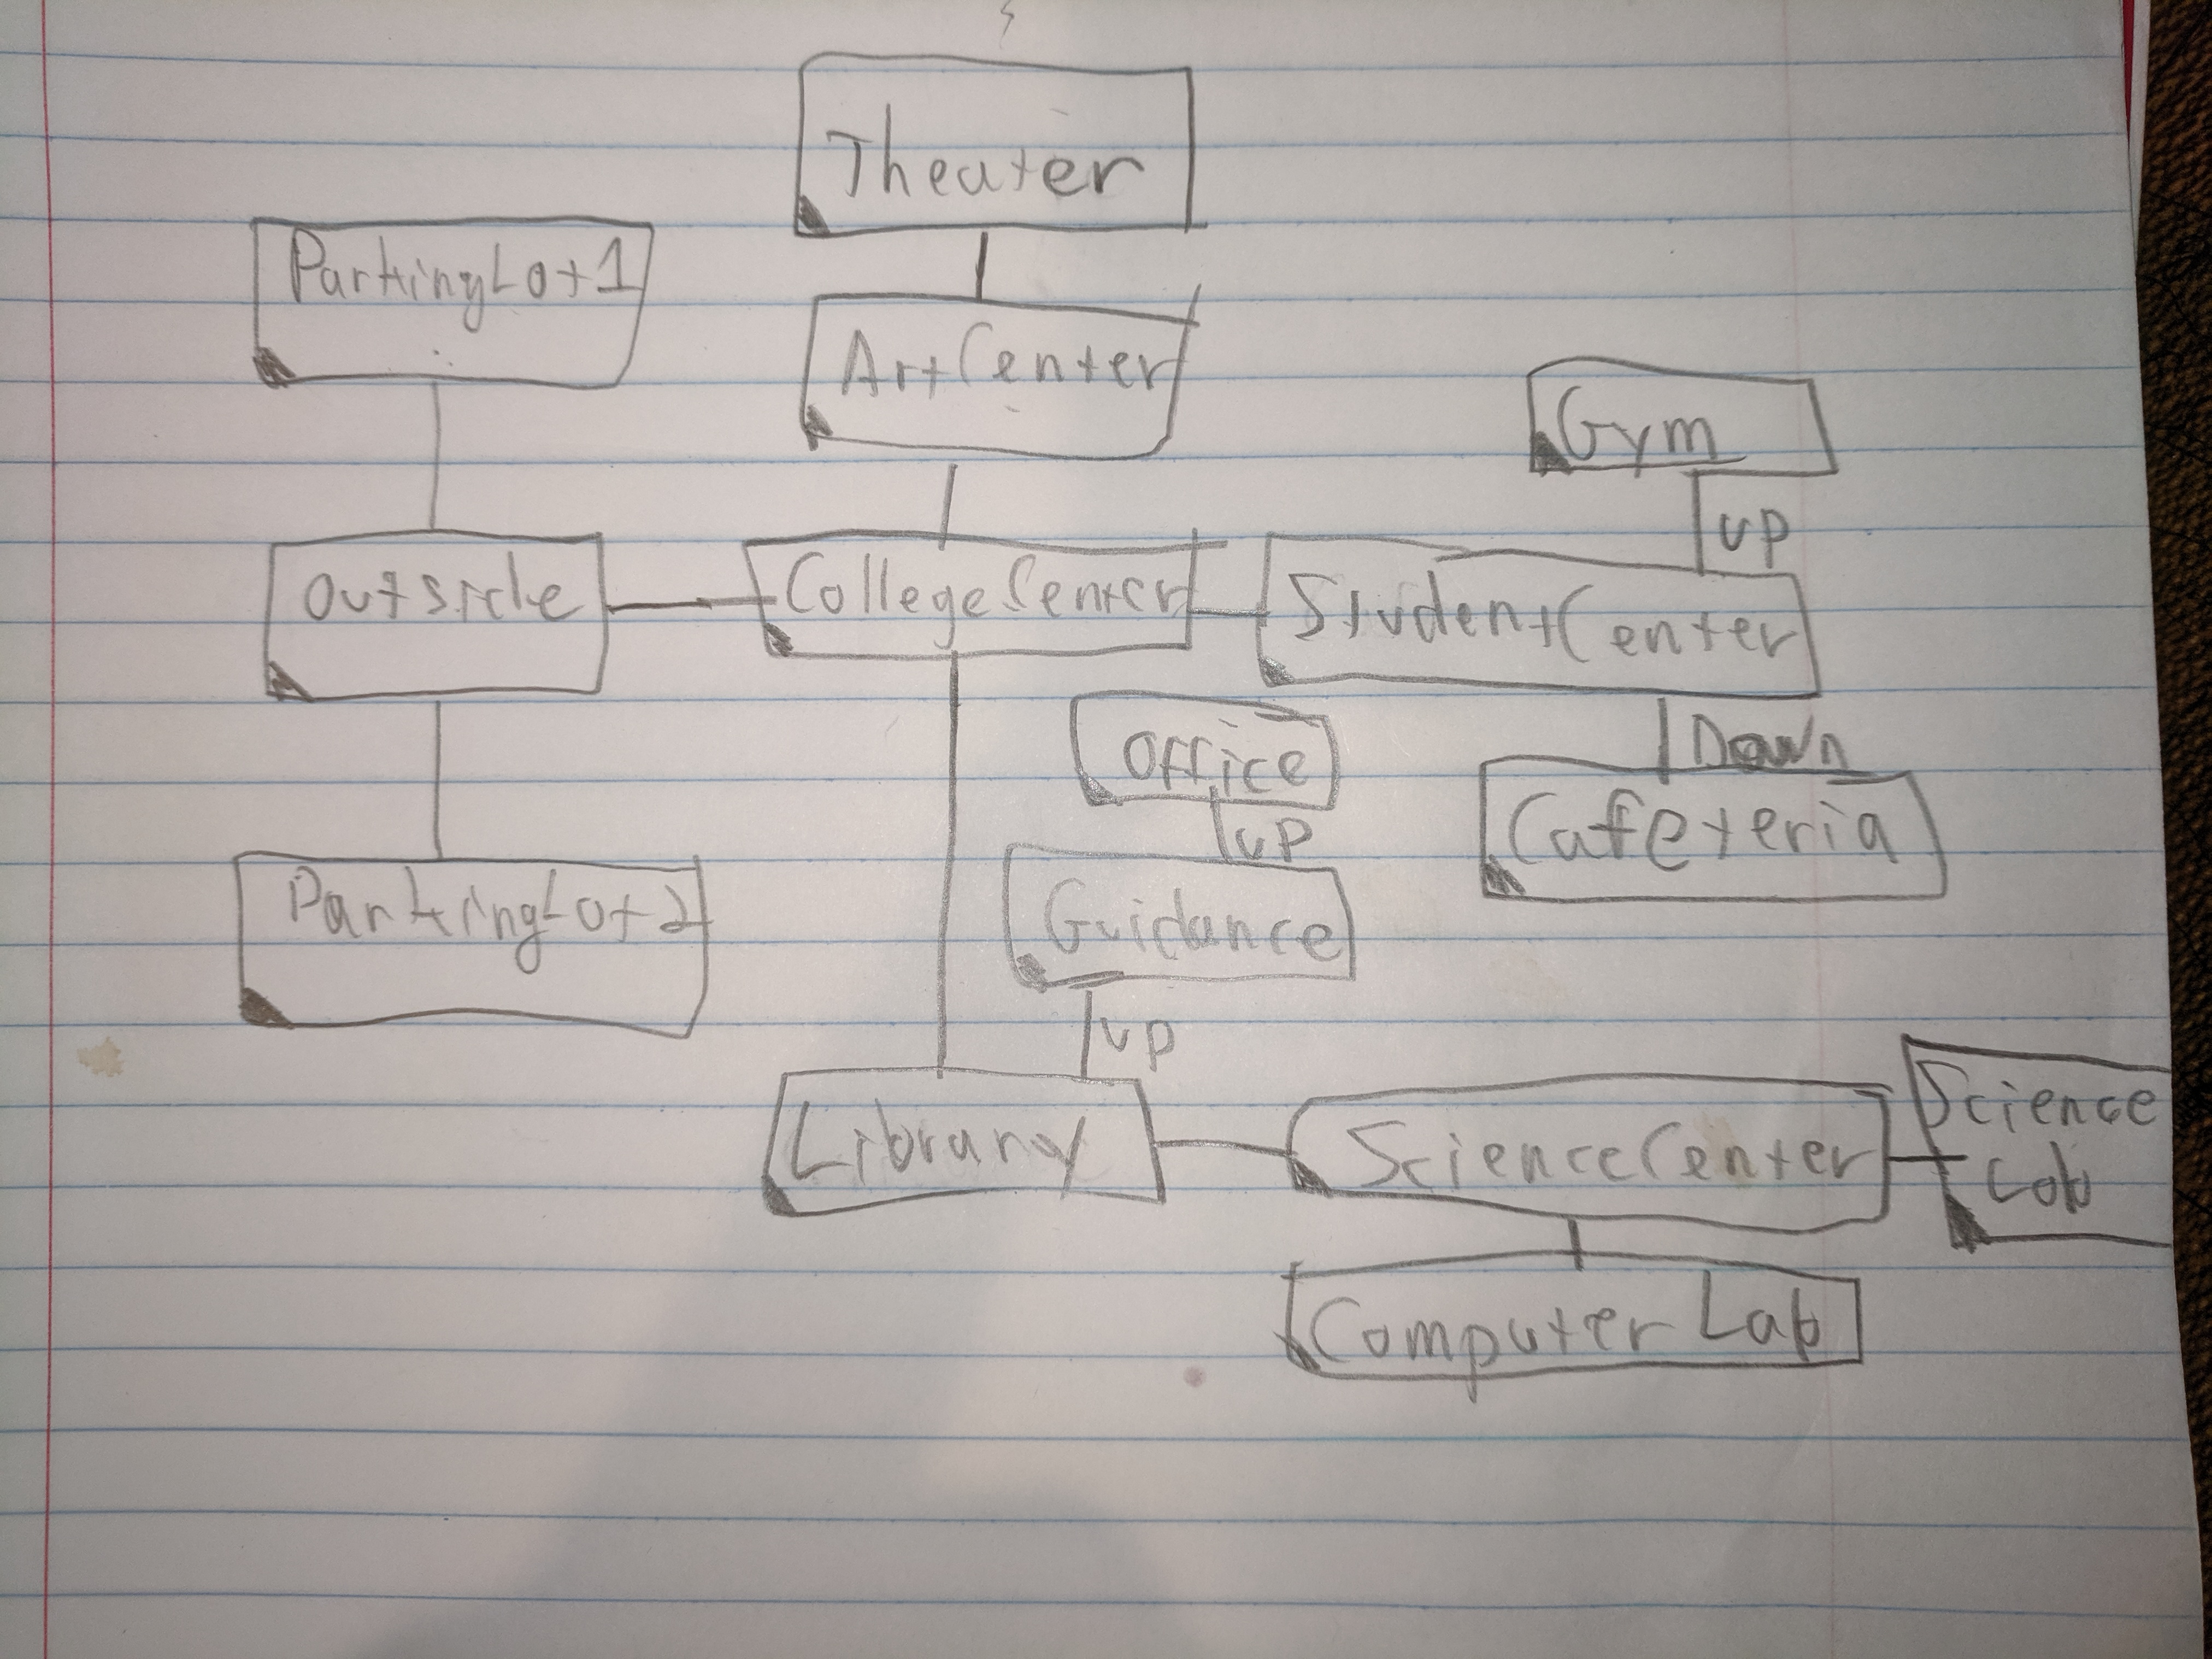 Theater
ParkingLot1
ArtCenter
Gym
up
Outside
CollegeCenter
StudentCenter
Down
Office
up
Cafeteria
ParkingLot2
Guidance
up
Library
ScienceCenter
Science
Lab
Computer Lab